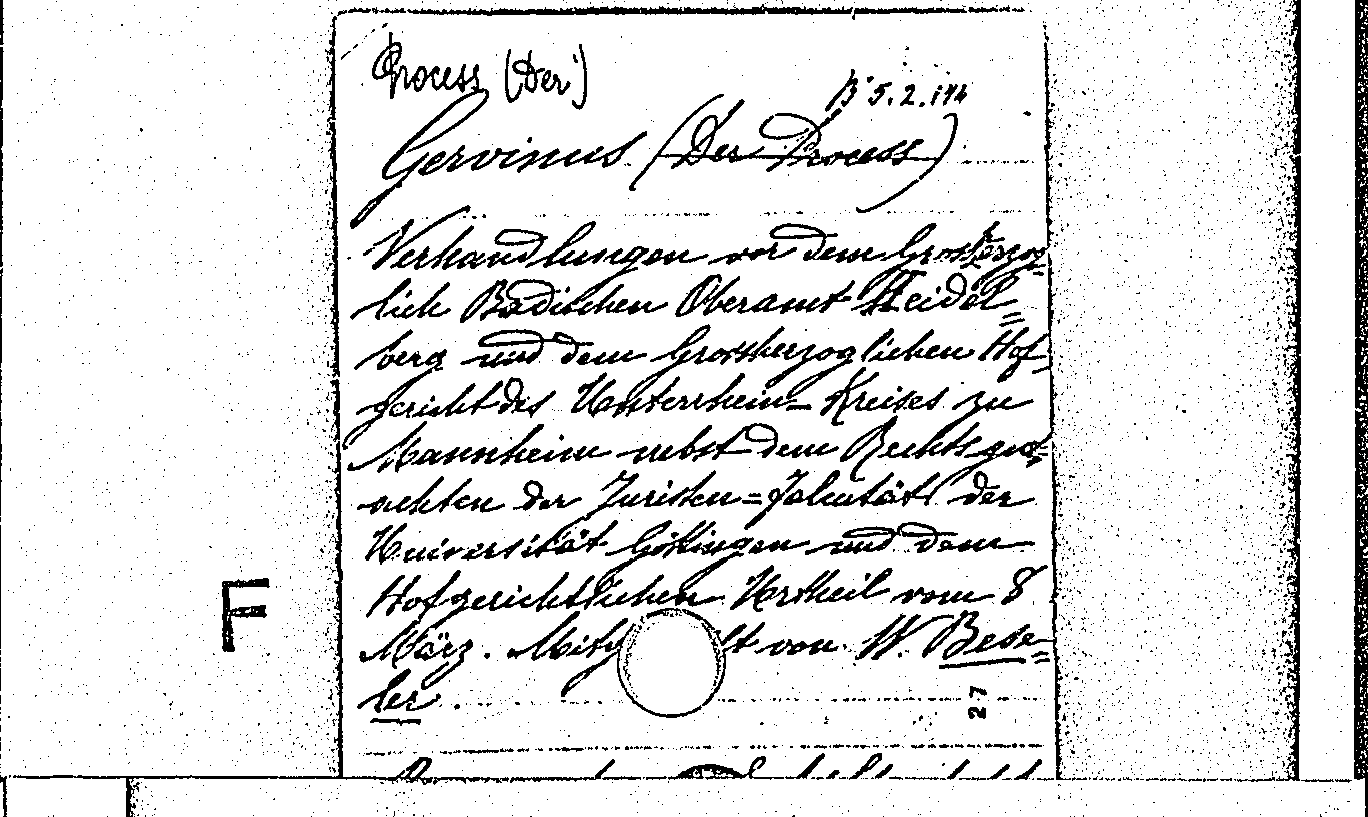 Process (Der)
B 5.2.174
Gervinus (Der Process)
Verhandlungen vor dem Grossherzog=
lich Badischen Oberamt Heidel=
berg und dem Grossherzoglichen Hof=
gericht des Unterrhein-Kreises zu
Mannheim nebst dem Rechtsgut=
achten der Juristen=Fakultät der
Universität Göttingen und dem
Hofgerichtlichen Urtheil vom 8
März. Mitg lt von W. Bese=
ler.
27
F